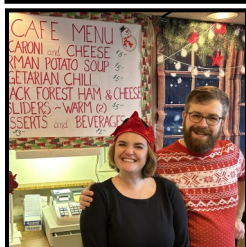 CAFE MENU
CARONI and CHEESE
RMAN POTATO SOUP
GETARIAN CHILI
ACK FOREST HAM & CHEESE
SLIDERS ~ WARM (2)
SSERTS and BEVERAGES